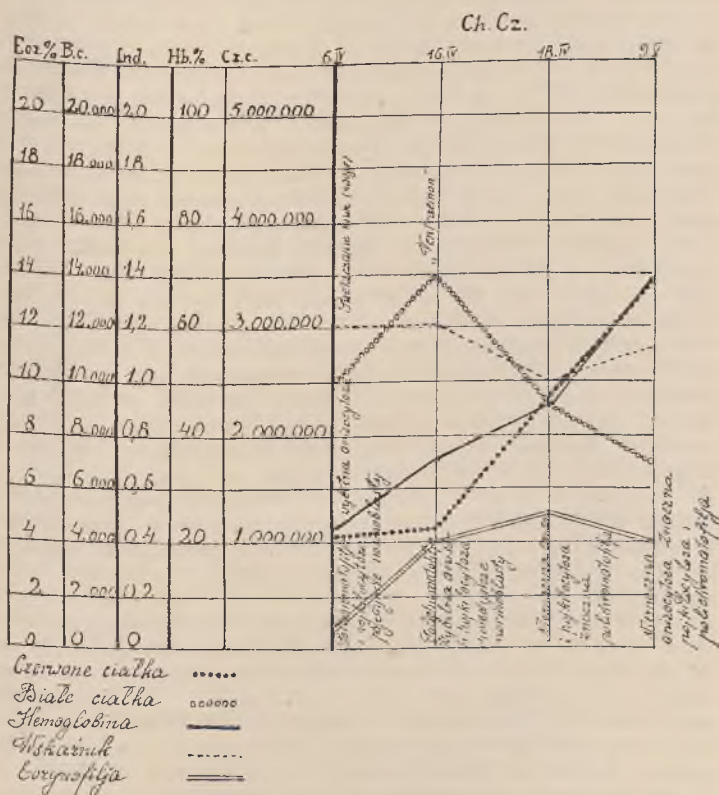 Ch. Cz.
Eoz% B.c. Ind. Hb.% Cz.c. 6.IV 16.IV 18.IV 9.V
20 20.000 2,0 100 5.000.000
18 18.000 1,8
16 16.000 1,6 80 4.000.000
14 14.000 1,4
12 12.000 1,2 60 3.000.000
10 10.000 1,0
8 8.000 0,8 40 2.000.000
6 6.000 0,6
4 4.000 0,4 20 1.000.000
2 2.000 0,2
0 0 0
wybitna anizocytoza
i pojkilocytoza
pojedyncze normoblasty
Wybitna
i pojkilocytoza
normoblasty
Nieznaczna
i pojkilocytoza
znaczna
polichromatofilja
Nieznaczna
anizocytoza znaczna
pojkilocytoza,
polichromatofilja.
Czerwone ciałka
Białe ciałka
Hemoglobina
Wskaźnik
Eozynofilja